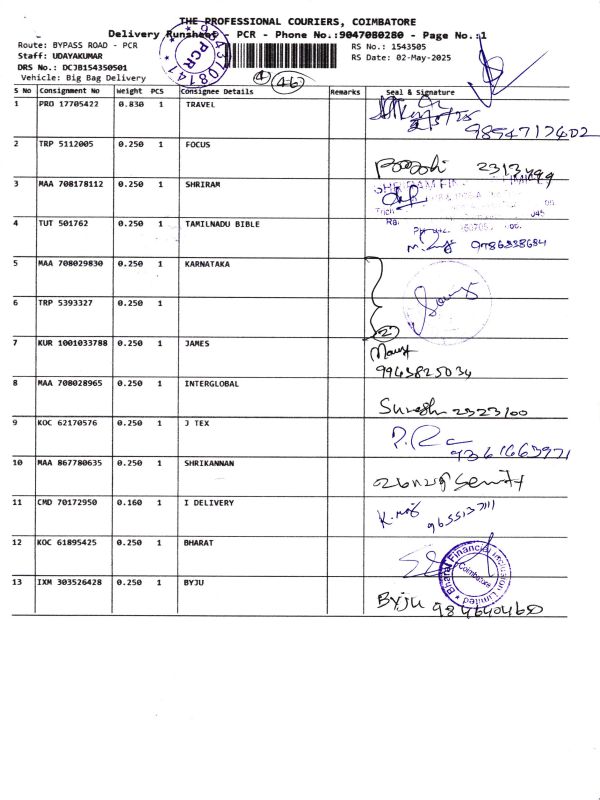 THE PROFESSIONAL COURIERS, COIMBATORE
Delivery Runsheet - PCR - Phone No.:9047080280 - Page No.:1
Route: BYPASS ROAD - PCR RS No.: 1543505
Staff: UDAYAKUMAR RS Date: 02-May-2025
DRS No.: DCJB154350501
Vehicle: Big Bag Delivery
PCR
S No Consignment No Weight PCS Consignee Details Remarks Seal & Signature
1 PRO 17705422 0.830 1 TRAVEL
2 TRP 5112005 0.250 1 FOCUS
2313499
3 MAA 708178112 0.250 1 SHRIRAM
4 TUT 501762 0.250 1 TAMILNADU BIBLE
9786338684
5 MAA 708029830 0.250 1 KARNATAKA
6 TRP 5393327 0.250 1
2
7 KUR 1001033788 0.250 1 JAMES
9943825034
8 MAA 708028965 0.250 1 INTERGLOBAL
Suresh 2323100
9 KOC 62170576 0.250 1 J TEX
9361663971
10 MAA 867780635 0.250 1 SHRIKANNAN
11 CMD 70172950 0.160 1 I DELIVERY
12 KOC 61895425 0.250 1 BHARAT
Bharat Financial Inclusion Limited
Coimbatore
13 IXM 303526428 0.250 1 BYJU
Byju 9846404650